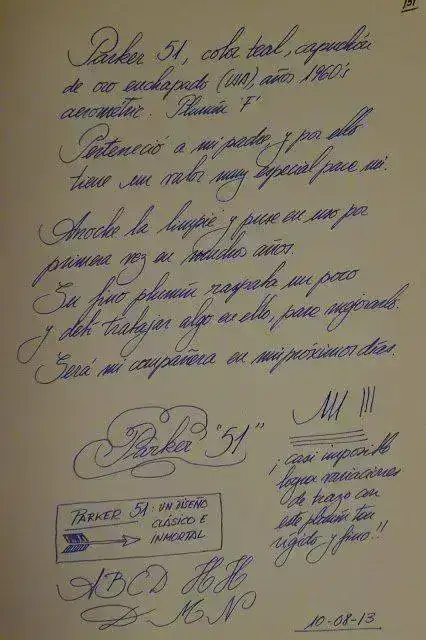 131
Parker 51, color teal, capuchón
de oro enchapado (USA), años 1960's
aerometric. Plumín 'F'
Perteneció a mi padre, y por ello
tiene un valor muy especial para mi.
Anoche la limpié y puse en uso por
primera vez en muchos años.
Su fino plumín raspaba un poco
y debí trabajar algo en ello, para mejorarlo.
Será mi compañera en mis próximos días.
Parker "51"
¡casi imposible
lograr variaciones
de trazo con
este plumín tan
rígido y fino!!
PARKER 51: UN DISEÑO
CLÁSICO E
INMORTAL
A B C D H H
D M N
10-08-13